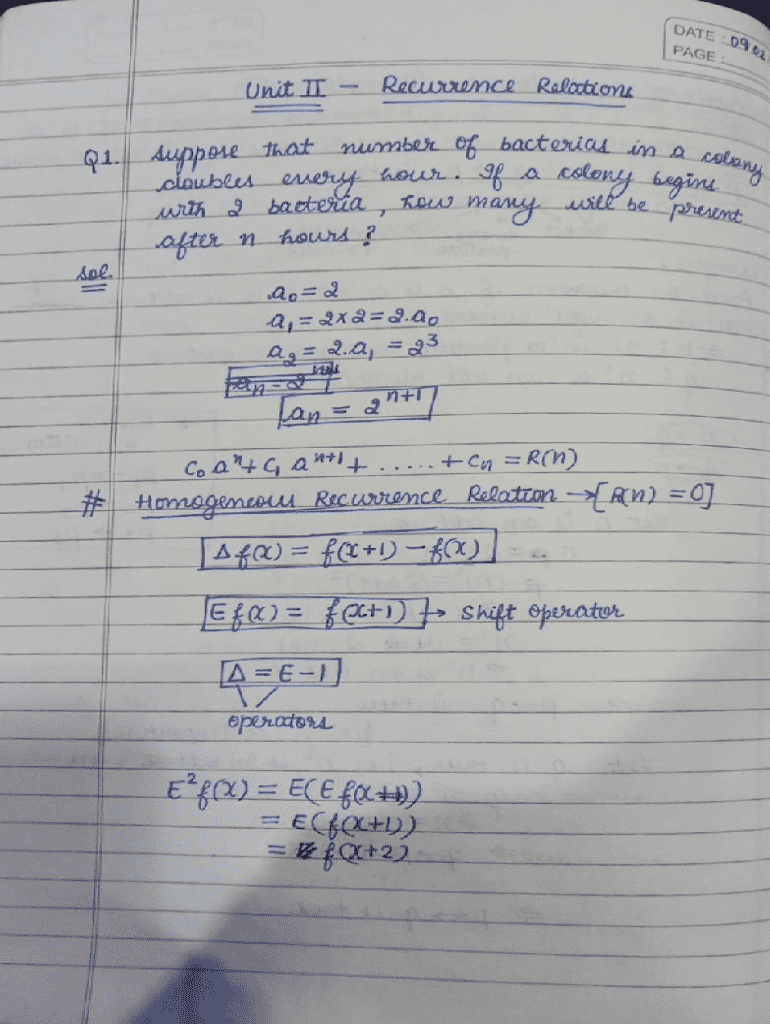 DATE : 09 02
PAGE :
Unit II - Recurrence Relations
Q1. Suppose that number of bacterias in a colony
doubles every hour. If a colony begins
with 2 bacteria, how many will be present
after n hours ?
Sol.
a₀ = 2
a₁ = 2x2 = 2.a₀
a₂ = 2.a₁ = 2³
aₙ = 2ⁿ⁺¹
C₀ aⁿ + C₁ aⁿ⁺¹ + ..... + Cₙ = R(n)
# Homogeneous Recurrence Relation → [R(n) = 0]
Δ f(x) = f(x+1) - f(x)
E f(x) = f(x+1) → Shift operator
Δ = E - 1
operators
E² f(x) = E(E f(x))
= E(f(x+1))
= f(x+2)